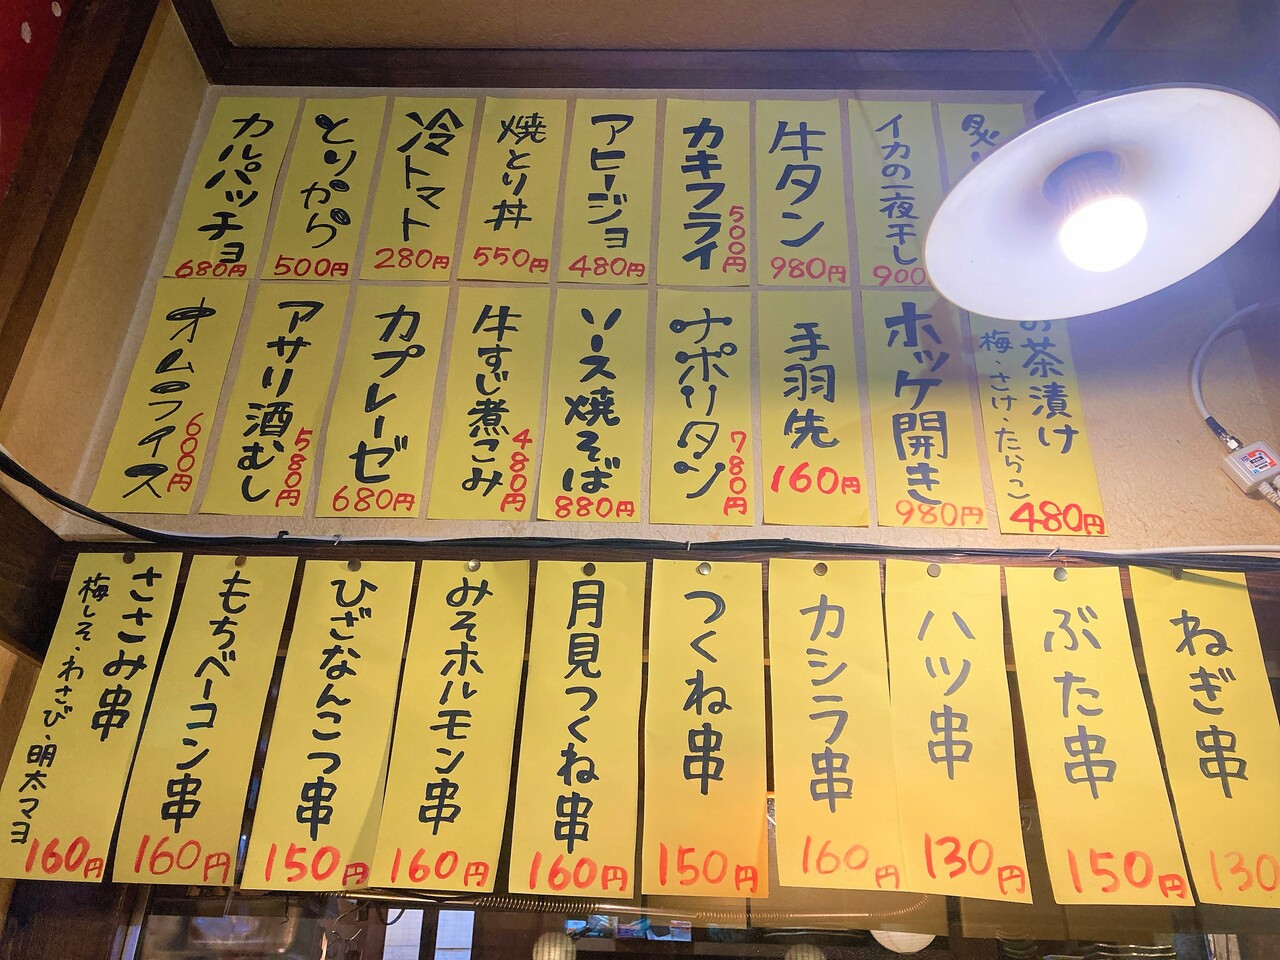 炙り
イカの一夜干し
900
牛タン
980円
カキフライ
500円
アヒージョ
480円
焼とり丼
550円
冷トマト
280円
とりから
500円
カルパッチョ
680円
お茶漬け
梅・さけ・たらこ
480円
ホッケ開き
980円
手羽先
160円
ナポリタン
780円
ソース焼そば
880円
牛すじ煮こみ
480円
カプレーゼ
680円
アサリ酒むし
580円
オムライス
600円
ねぎ串
130
ぶた串
150円
ハツ串
130円
カシラ串
160円
つくね串
150円
月見つくね串
160円
みそホルモン串
160円
ひざなんこつ串
150円
もちベーコン串
160円
ささみ串
梅しそ・わさび・明太マヨ
160円